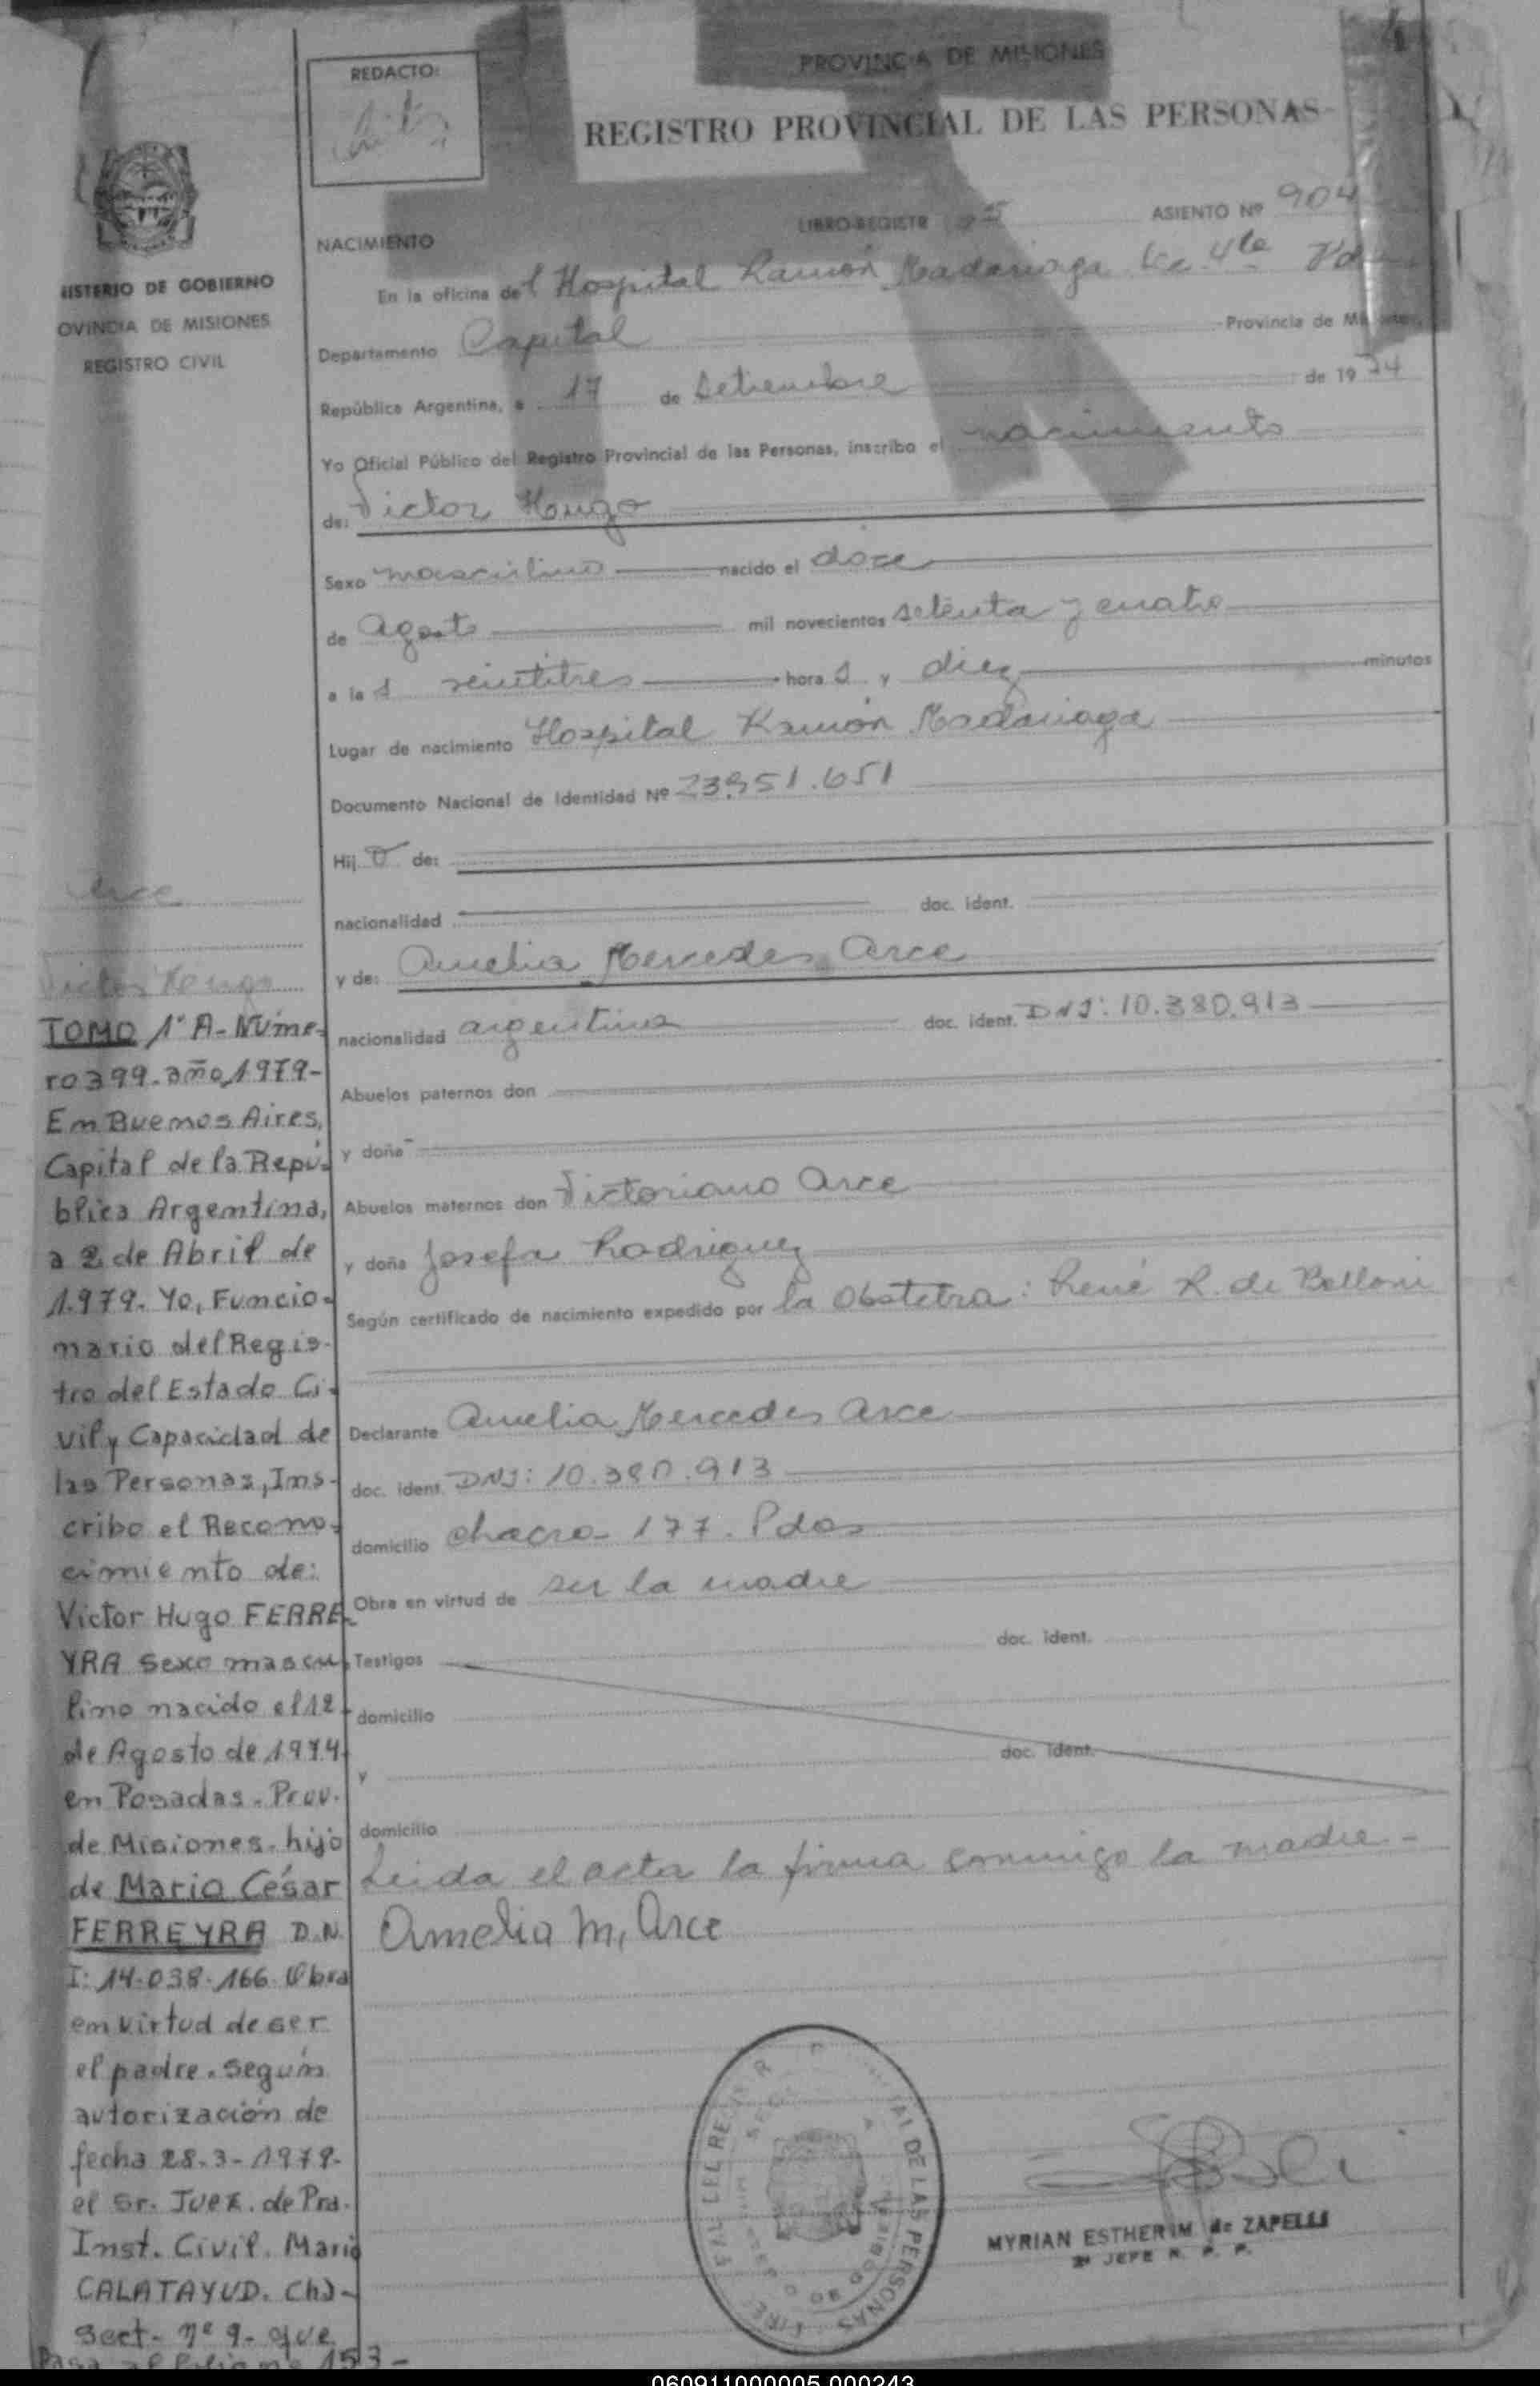 REDACTO:
PROVINCIA DE MISIONES
REGISTRO PROVINCIAL DE LAS PERSONAS
LIBRO-REGISTR
ASIENTO Nº 904
NACIMIENTO
En la oficina del Hospital Ramón Madariaga Sec. 4ta
Departamento Capital Provincia de Misiones,
República Argentina, a 17 de Setiembre de 1974
Yo Oficial Público del Registro Provincial de las Personas, inscribo el nacimiento
de: Victor Hugo
Sexo masculino nacido el doce
de Agosto mil novecientos setenta y cuatro
a las veintitres horas y diez minutos
Lugar de nacimiento Hospital Ramón Madariaga
Documento Nacional de Identidad Nº 23.951.651
Hijo de:
nacionalidad doc. ident.
y de: Amelia Mercedes Arce
nacionalidad argentina doc. ident. DNI: 10.380.913
Abuelos paternos don
y doña
Abuelos maternos don Victoriano Arce
y doña Josefa Rodriguez
Según certificado de nacimiento expedido por la Obstetra: René R. de Belloni
Declarante Amelia Mercedes Arce
doc. ident. DNI: 10.380.913
domicilio chacra 177. Pdas
Obra en virtud de ser la madre
doc. ident.
Testigos
domicilio
y doc. ident.
domicilio
Leida el acta la firma conmigo la madre-
Amelia M, Arce
MYRIAN ESTHER M. de ZAPELLI
2ª JEFE R. P. P.
DE LAS PERSONAS
ISTERIO DE GOBIERNO
OVINCIA DE MISIONES
REGISTRO CIVIL
Arce
Victor Hugo
TOMO 1º A- Núme-
ro 399- año 1979-
En Buenos Aires,
Capital de la Repú-
blica Argentina,
a 2 de Abril de
1.979. Yo, Funcio-
nario del Regis-
tro del Estado Ci-
vil y Capacidad de
las Personas, Ins-
cribo el Recono-
cimiento de:
Victor Hugo FERRE-
YRA Sexo mascu-
lino nacido el 12
de Agosto de 1974
en Posadas. Prov.
de Misiones. hijo
de Mario César
FERREYRA D.N.
I: 14.038.166 Obra
en virtud de ser
el padre. según
autorización de
fecha 28-3-1979-
el Sr. Juez. de Pra.
Inst. Civil. Mario
CALATAYUD. (h)-
Sect- nº 9- que
Pasa al folio nº 153-
060911000005 000243